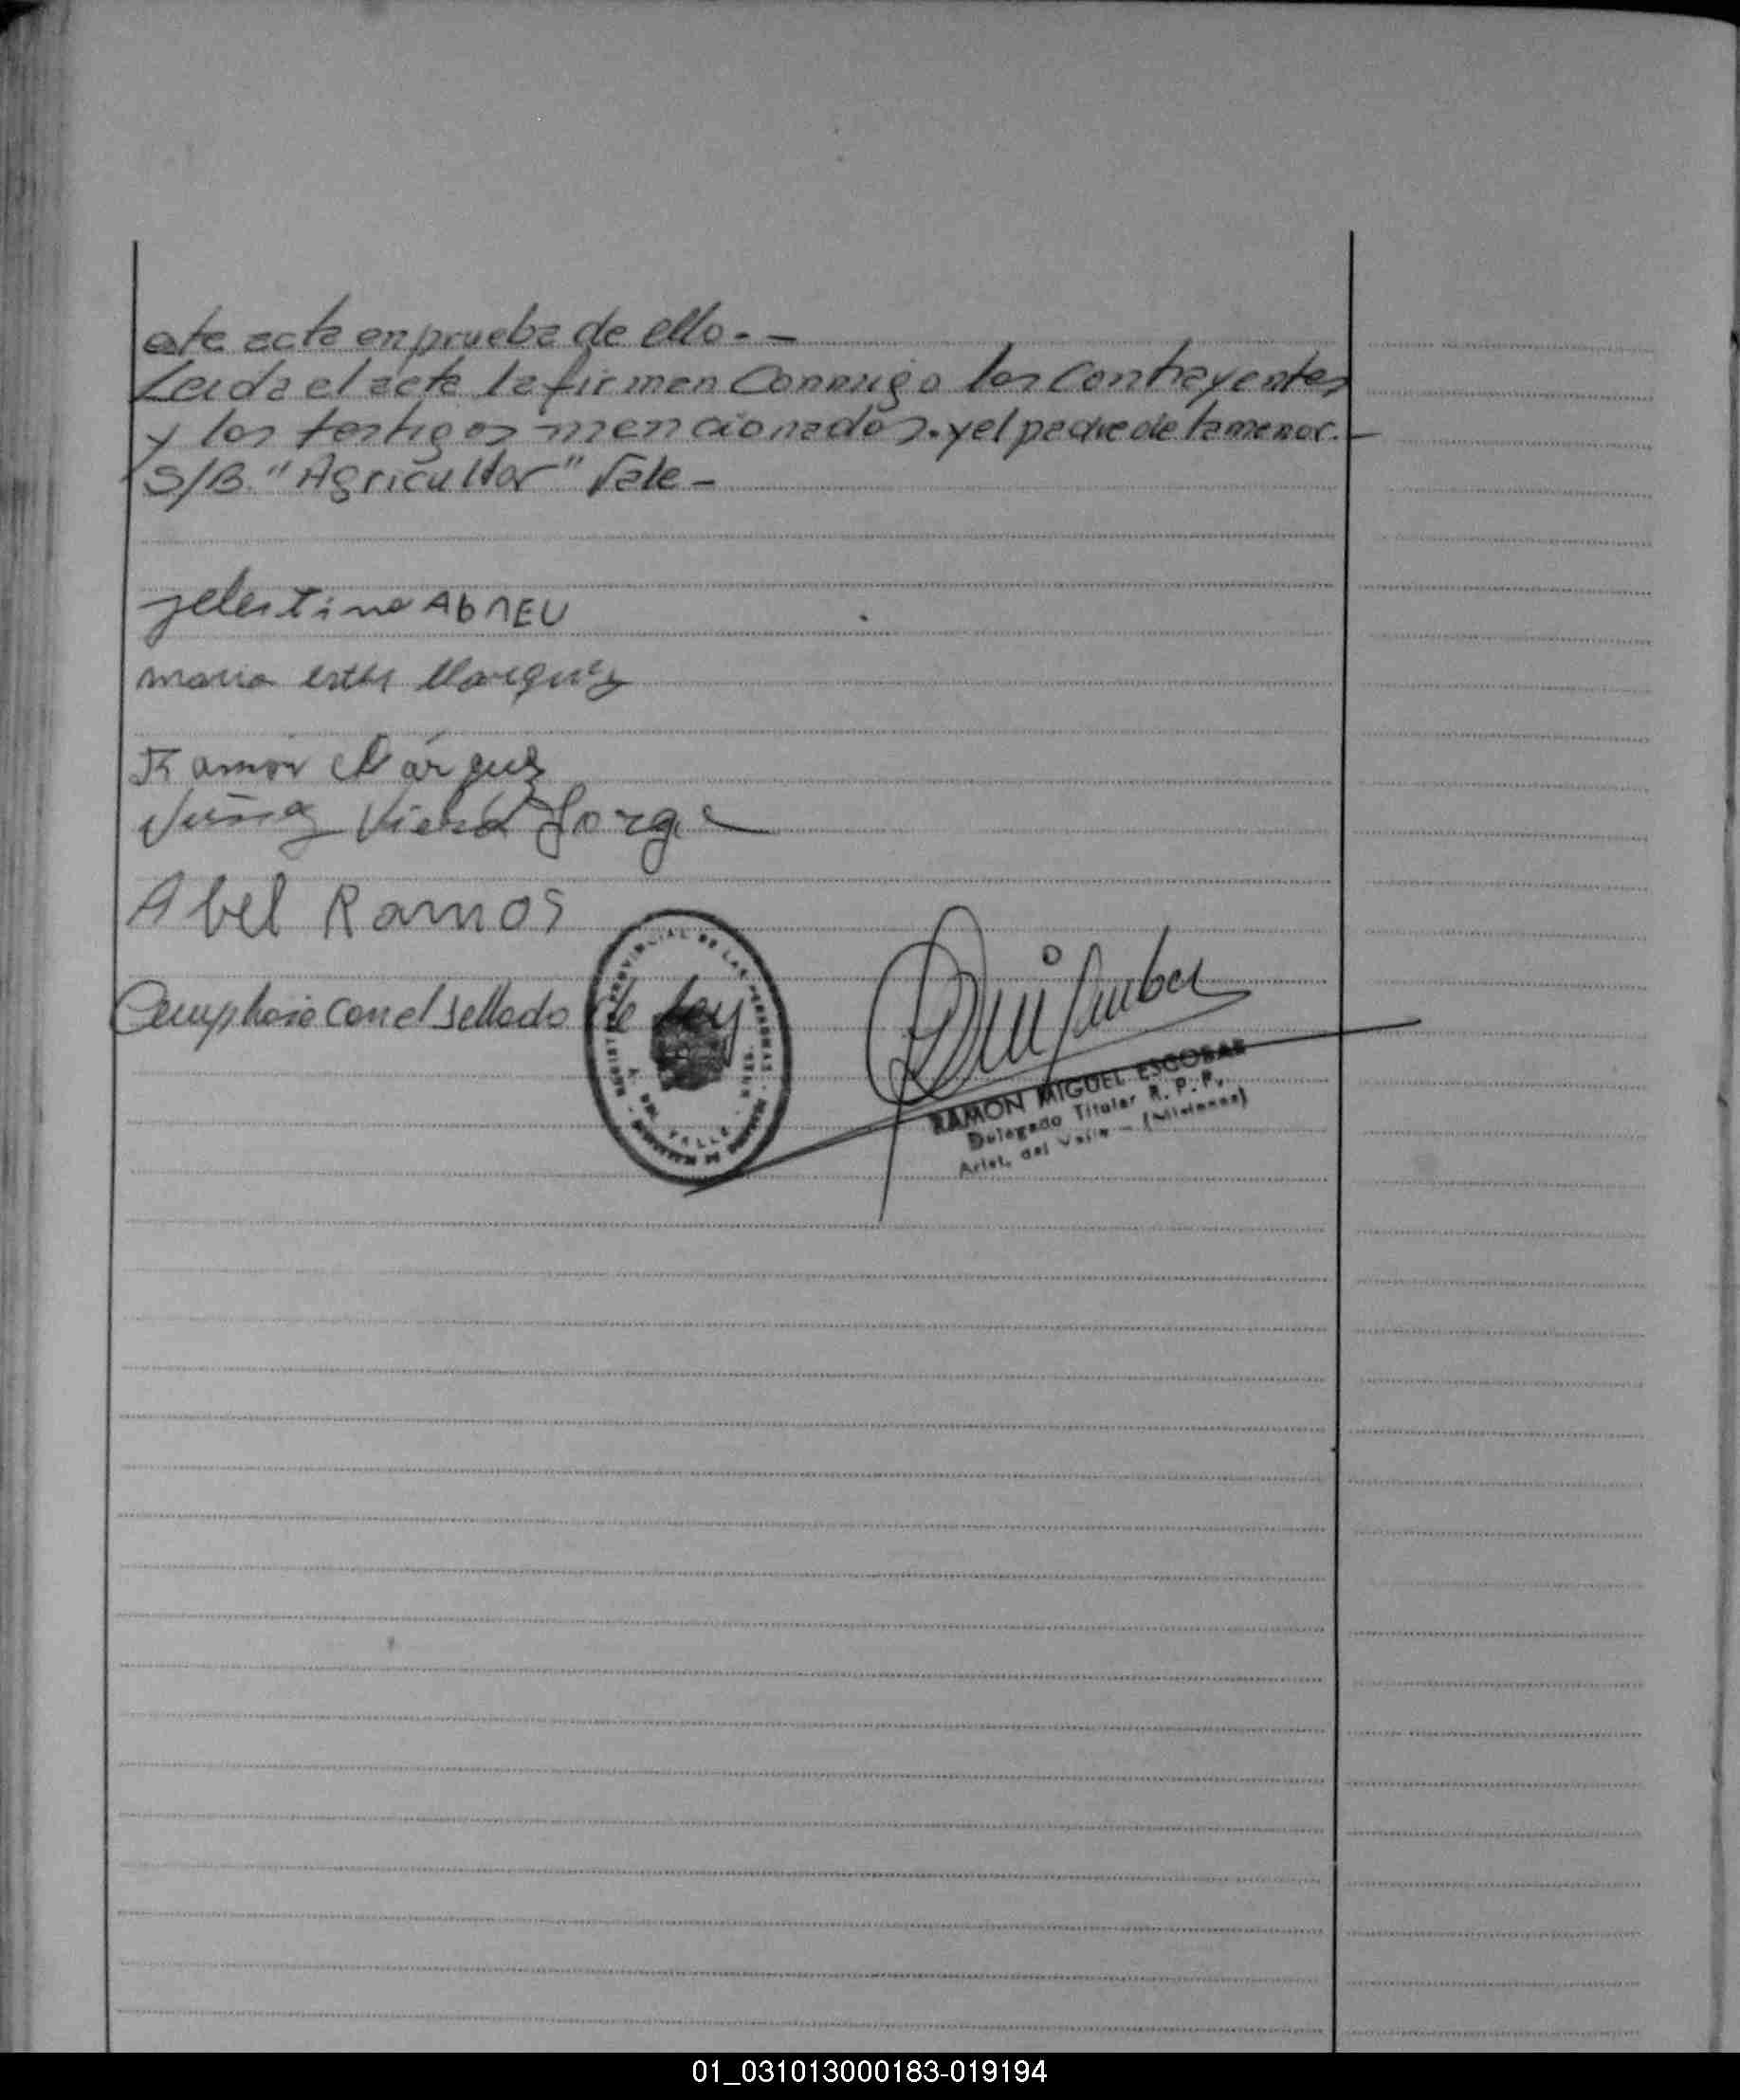 este acta en prueba de ello.-
Leida el acta la firman Conmigo los Contrayentes
y los testigos mencionados. y el padre de la menor.-
S/B. "Agricultor" Vale-
Selestino AbrEU
maria ester Marquez
Ramón Márquez
Viera Jorge
Abel Ramos
con el sellado de Ley
PROVINCIAL DE LAS PERSONAS
DEL VALLE
RAMON MIGUEL ESCOBAR
Delegado Titular R. P. P.
Arist. del Valle - (Misiones)
01_031013000183-019194